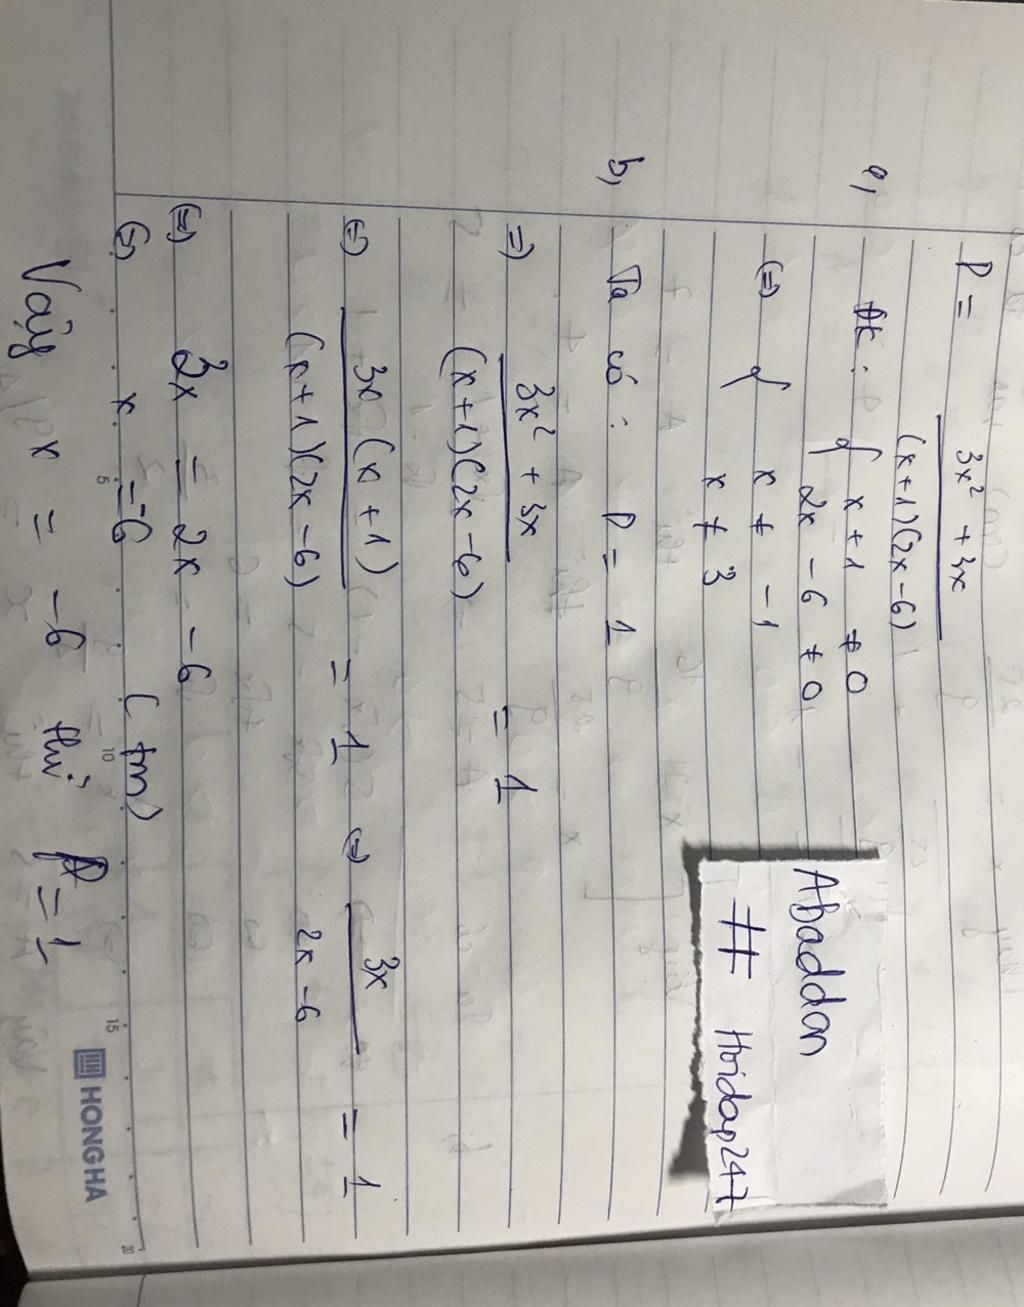 P = \frac{3x² + 3x}{(x+1)(2x-6)}
a, đk : { x + 1 ≠ 0
2x - 6 ≠ 0
(=) { x ≠ -1
x ≠ 3
b, Ta có : P = 1
=) \frac{3x² + 3x}{(x+1)(2x-6)} = 1
(=) \frac{3x(x+1)}{(x+1)(2x-6)} = 1 (=) \frac{3x}{2x-6} = 1
(=) 3x = 2x - 6
(=) x = -6 (tm)
Vậy x = -6 thì P = 1
Abaddon
# Hoidap247
5 10 15 20
HONG HA